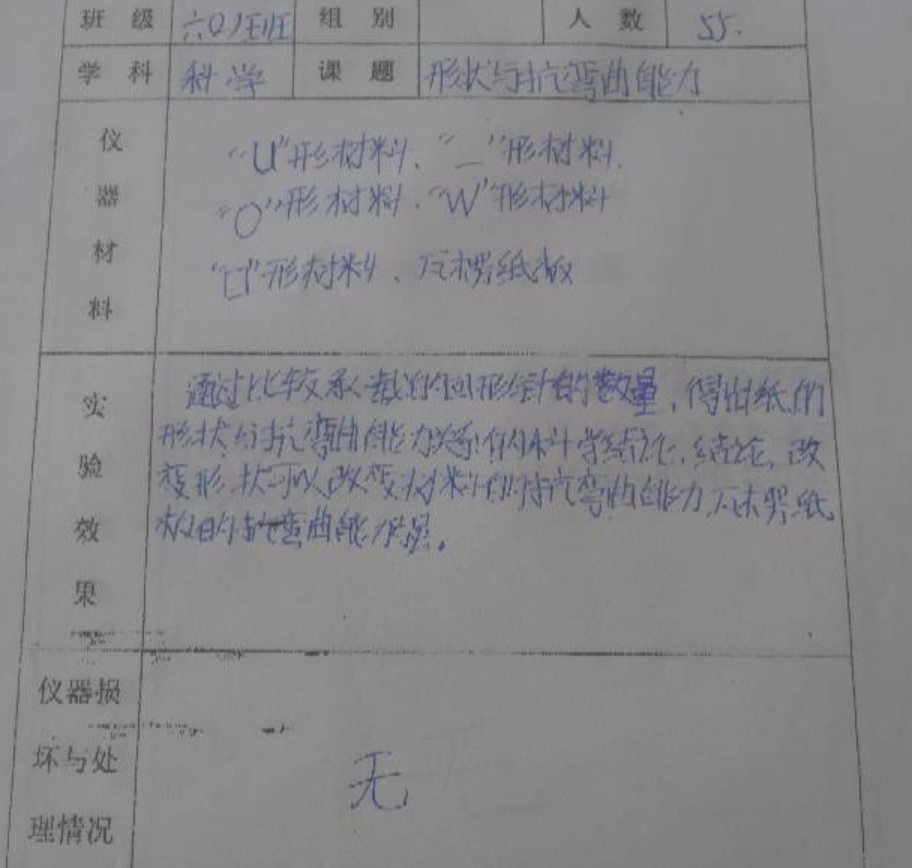 班 级 六(1)班 组 别 人 数 55.
学 科 科学 课 题 形状与抗弯曲能力
仪器材料
“U”形材料、“_”形材料.
“O”形材料.“W”形材料
“口”形材料、瓦楞纸板
实验效果
通过比较承载的回形针的数量,得出纸的
形状与抗弯曲能力关系的科学结论.结论,改
变形状可以改变材料的抗弯曲能力,瓦楞纸
板的抗弯曲能力最强。
仪器损
坏与处
理情况
无